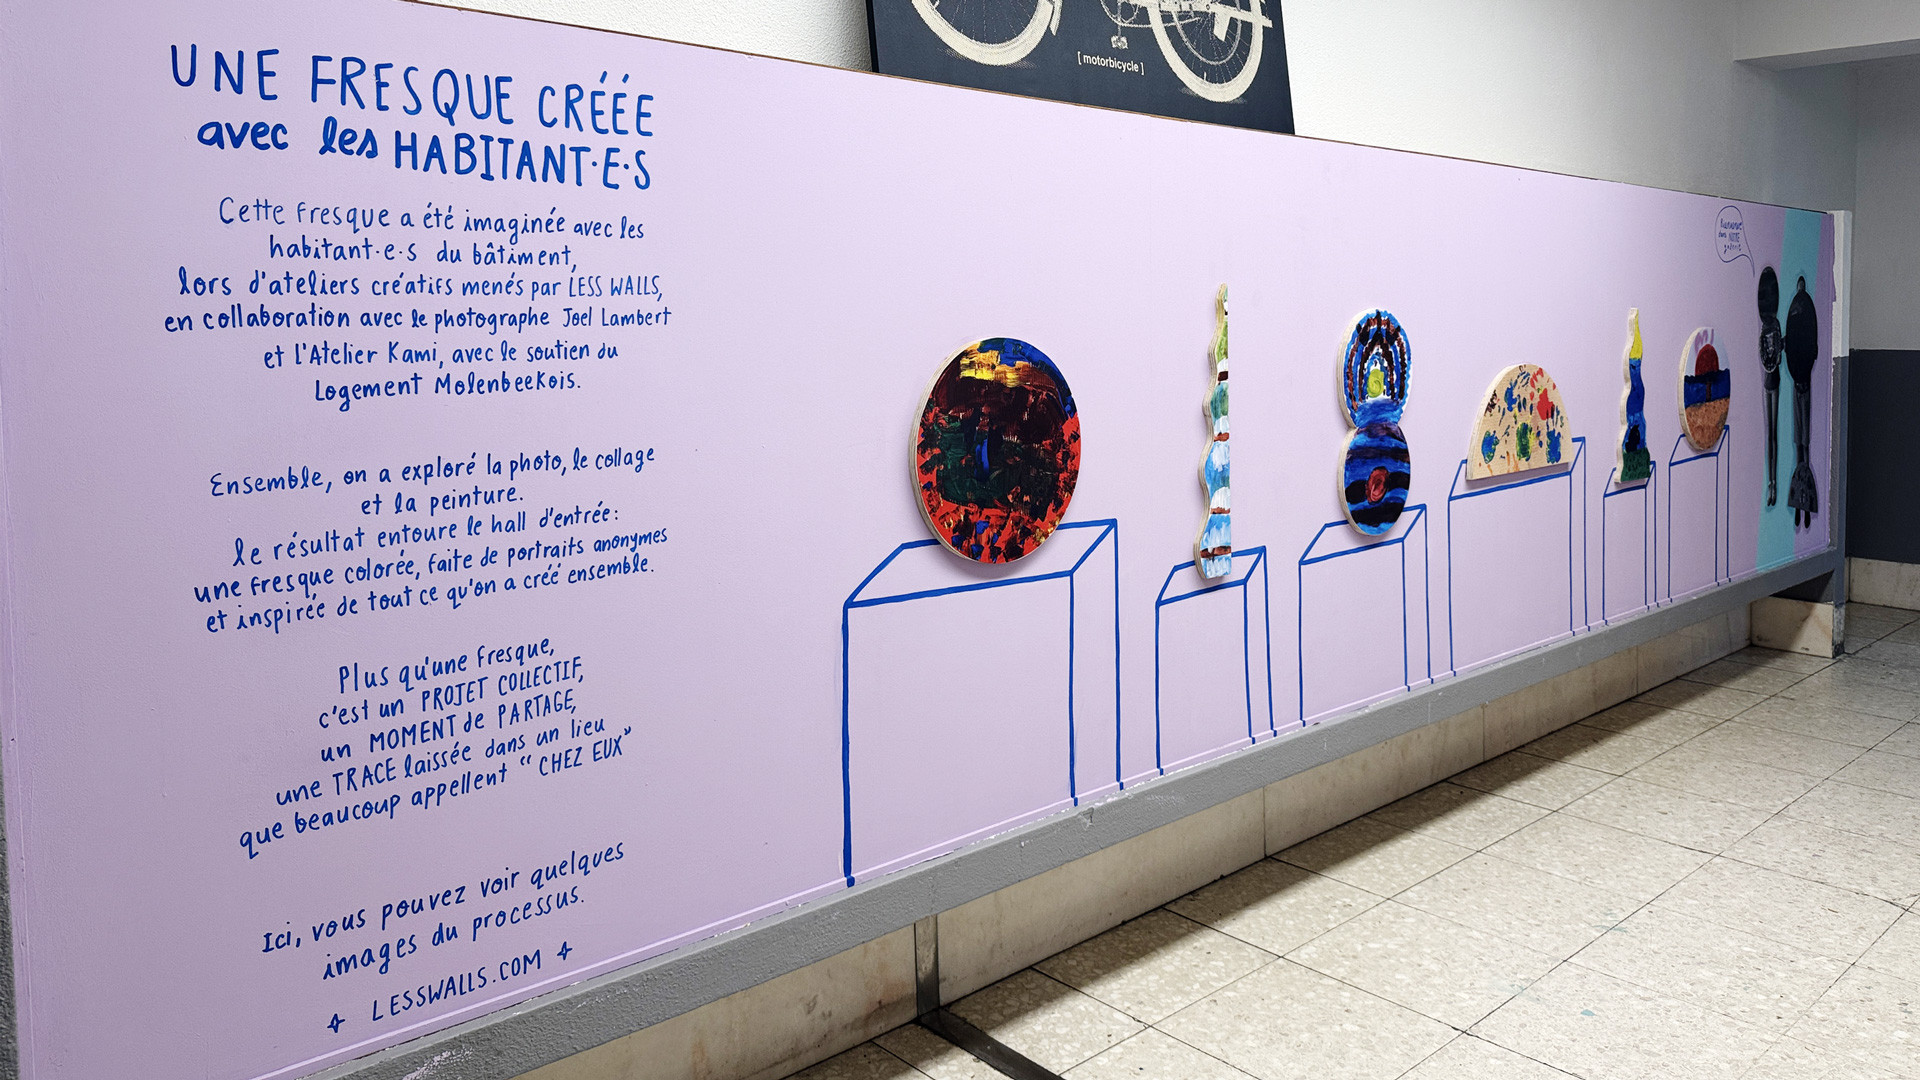 UNE FRESQUE CRÉÉE
avec les HABITANT·E·S
Cette fresque a été imaginée avec les
habitant·e·s du bâtiment,
lors d'ateliers créatifs menés par LESS WALLS,
en collaboration avec le photographe Joel Lambert
et l'Atelier Kami, avec le soutien du
Logement Molenbeekois.
Ensemble, on a exploré la photo, le collage
et la peinture.
le résultat entoure le hall d'entrée:
une fresque colorée, faite de portraits anonymes
et inspirée de tout ce qu'on a créé ensemble.
Plus qu'une fresque,
c'est un PROJET COLLECTIF,
un MOMENT de PARTAGE,
une TRACE laissée dans un lieu
que beaucoup appellent "CHEZ EUX"
Ici, vous pouvez voir quelques
images du processus.
LESSWALLS.COM
[ motorbicycle ]
Bienvenue
dans NOTRE